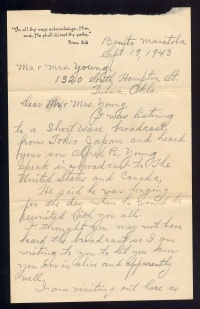 "In all thy ways acknowledge Him,
and He shall direct thy paths."
Prov. 3:6
Benito Manitoba
Sept 19, 1943
Mr & Mrs Young,
1320 South Hampton St.
Tulsa, Okla.
Dear Mr & Mrs Young,
I was listening
to a Short Wave broadcast
from Tokio Japan and heard
your son Alfred Young
speak in a broadcast to the
United States and Canada,
He said he was longing
for the day when he could be
reunited with you all.
I thought you may not have
heard the broadcast so I am
writing to you to let you know
your son is alive and apparently
well.
I am visiting out here as